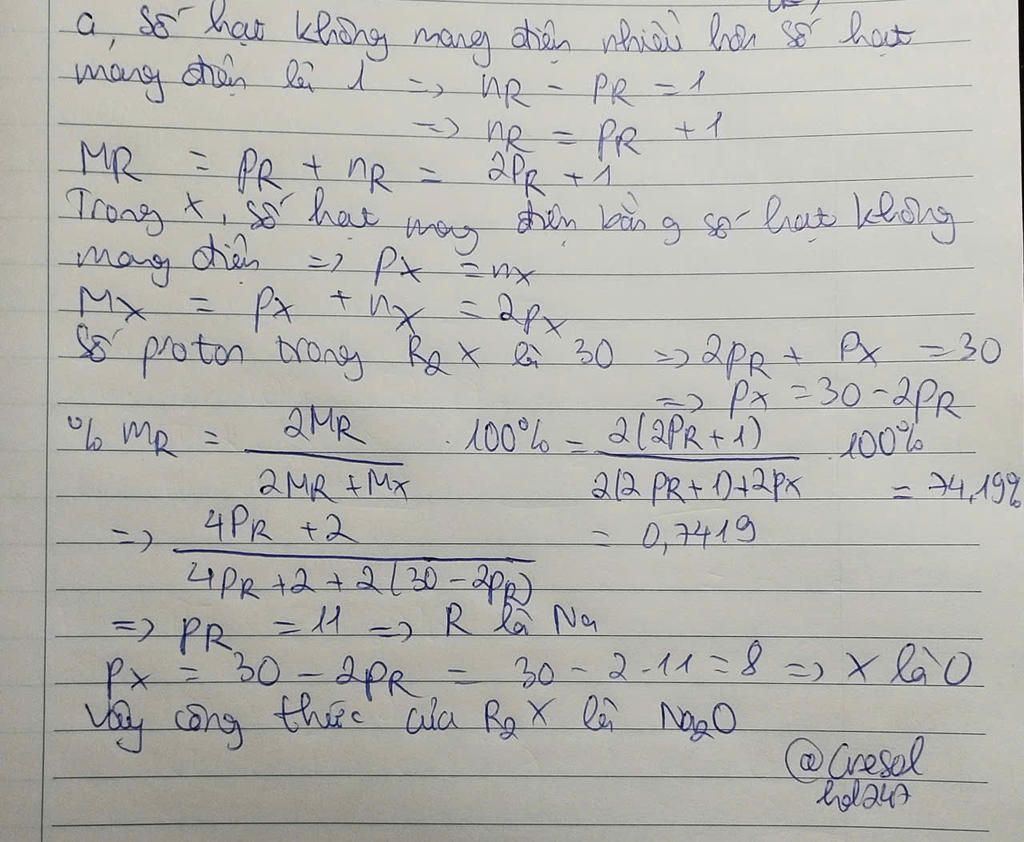 a, Số hạt không mang điện nhiều hơn số hạt
mang điện là 1 => nR - pR = 1
=> nR = pR + 1
MR = pR + nR = 2pR + 1
Trong X, số hạt mang điện bằng số hạt không
mang điện => pX = nX
MX = pX + nX = 2pX
Số proton trong R2X là 30 => 2pR + pX = 30
=> pX = 30 - 2pR
% mR = 2MR / 2MR + MX . 100% = 2(2pR + 1) / 2(2pR + 1) + 2pX . 100% = 74,19%
=> 4pR + 2 / 4pR + 2 + 2(30 - 2pR) = 0,7419
=> pR = 11 => R là Na
pX = 30 - 2pR = 30 - 2.11 = 8 => X là O
Vậy công thức của R2X là Na2O
@Cresol
hd247